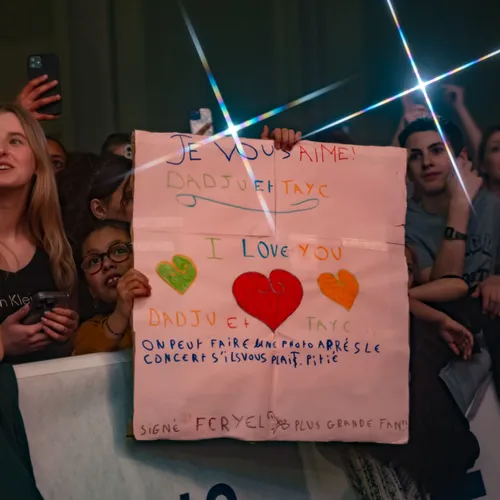 JE VOUS AIME!
DADJU ET TAYC
I LOVE YOU
DADJU ET TAYC
ON PEUT FAIRE UNE PHOTO APRÉS LE
CONCERT S'ILSVOUS PLAIT. PITIÉ
SIGNÉ "FERYEL PLUS GRANDE FAN"
n Kle